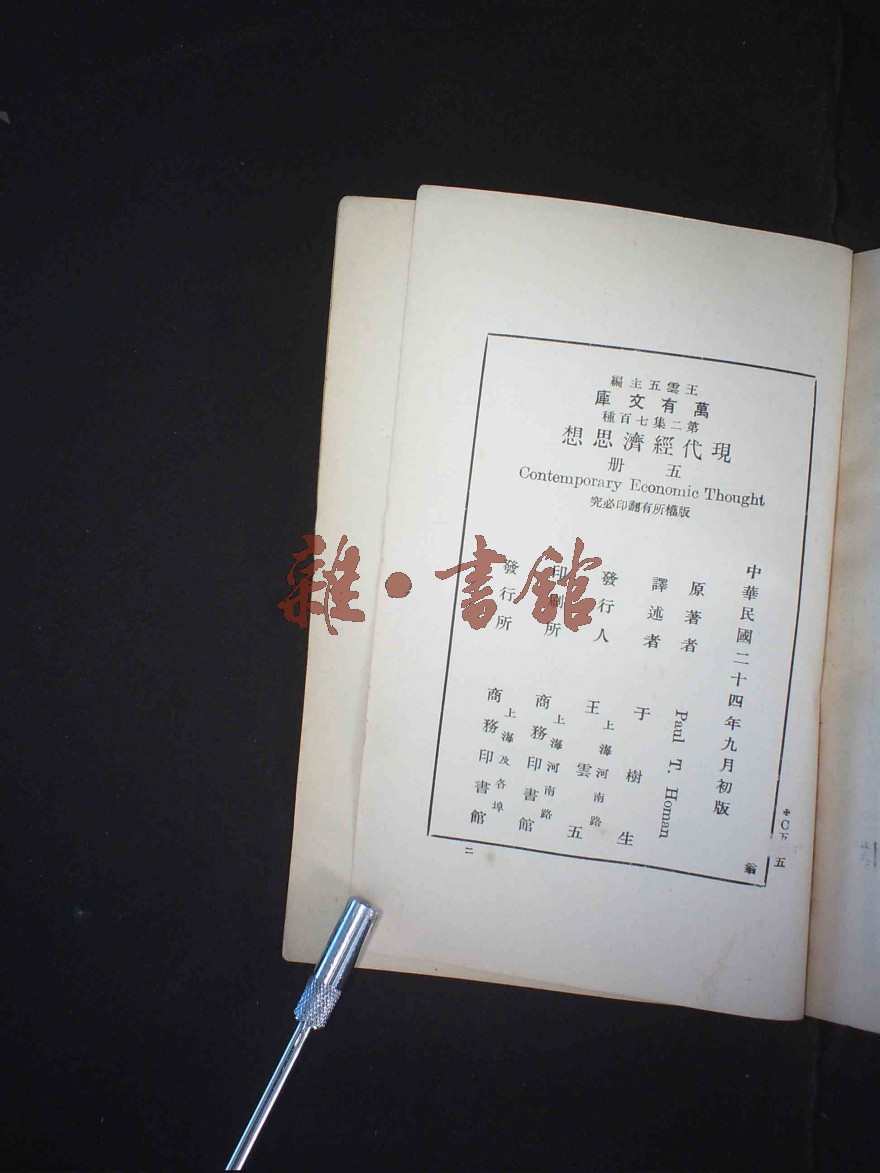 王雲五主編
萬有文庫
第二集七百種
現代經濟思想
五册
Contemporary Economic Thought
版權所有翻印必究
中華民國二十四年九月初版
原著者 Paul T. Homan
譯述者 于樹生
發行人 王雲五
上海河南路
印刷所 商務印書館
上海河南路
發行所 商務印書館
上海及各埠
C五五
翁
二
雜·書館